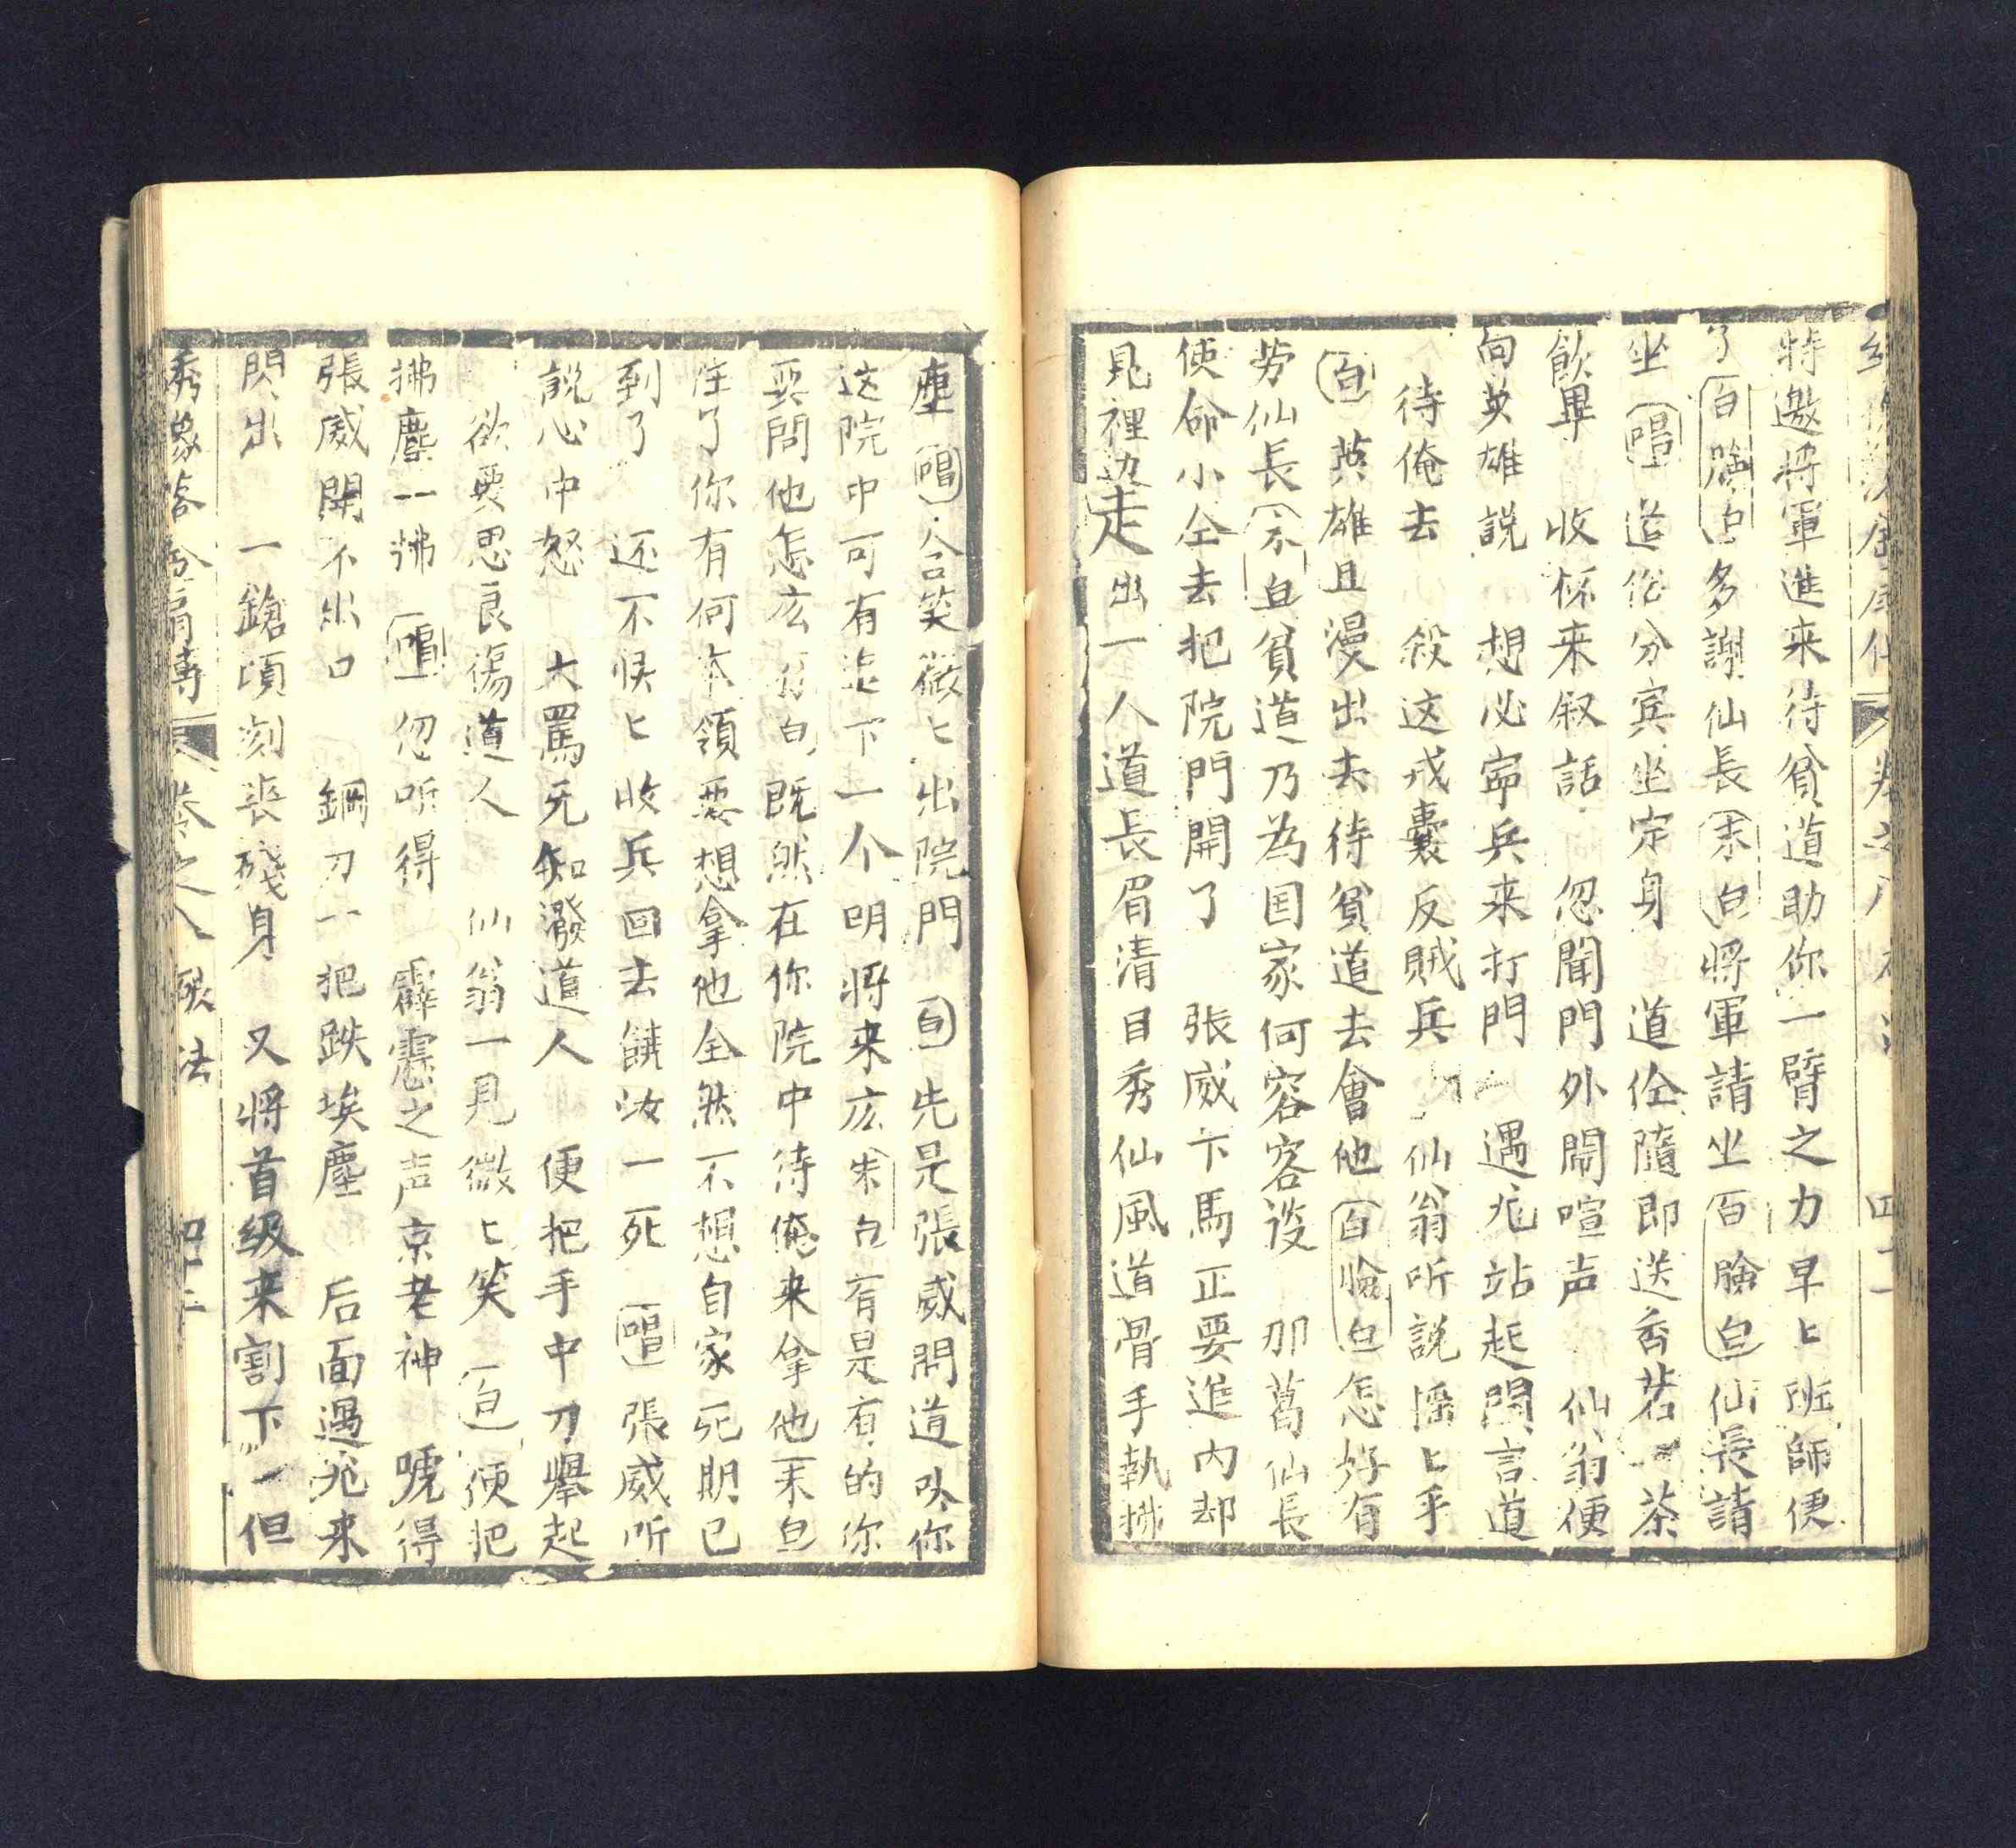 特邀将軍進来待貧道助你一臂之力早ヒ班師便
了白 多謝仙長末白将軍請坐 白臉白仙長請
坐 唱 道俗分宾坐定身 道仝隨即送香茗 茶
飲畢 收杯来叙話 忽聞門外鬧喧声 仙翁便
向英雄説 想必寧兵来打門 遇尨站起開言道
待俺去 殺这戎囊反賊兵 仙翁听説揺ヒ手
白 英雄且漫出去待貧道去會他白臉白怎好有
劳仙長末白貧道乃為囯家何容客设 那葛仙長
使命小仝去把院門開了 張威下馬正要進内却
見裡边走出一人道長眉清目秀仙風道骨手執拂
塵 唱 含笑微ヒ出院門 白先是張威開道呔你
这院中可有 下一个明将来広末白有是有的你
要問他怎広 白既然在你院中待俺来拿他末白
住了你有何本領要想拿他全然不想自家死期已
到了 还不快ヒ收兵回去饒汝一死 唱 張威听
説心中怒 大罵无知潑道人 便把手中刀舉起
欲要思良傷道人 仙翁一見微ヒ笑 白 便把
拂塵一拂 唱 忽听得 霹靂之声京老神 唬得
張威開不出口 鋼刀一把跌埃塵 后面遇尨来
閃出 一鎗頃刻丧殘身 又将首级来割下 但
秀像 傳 卷之八